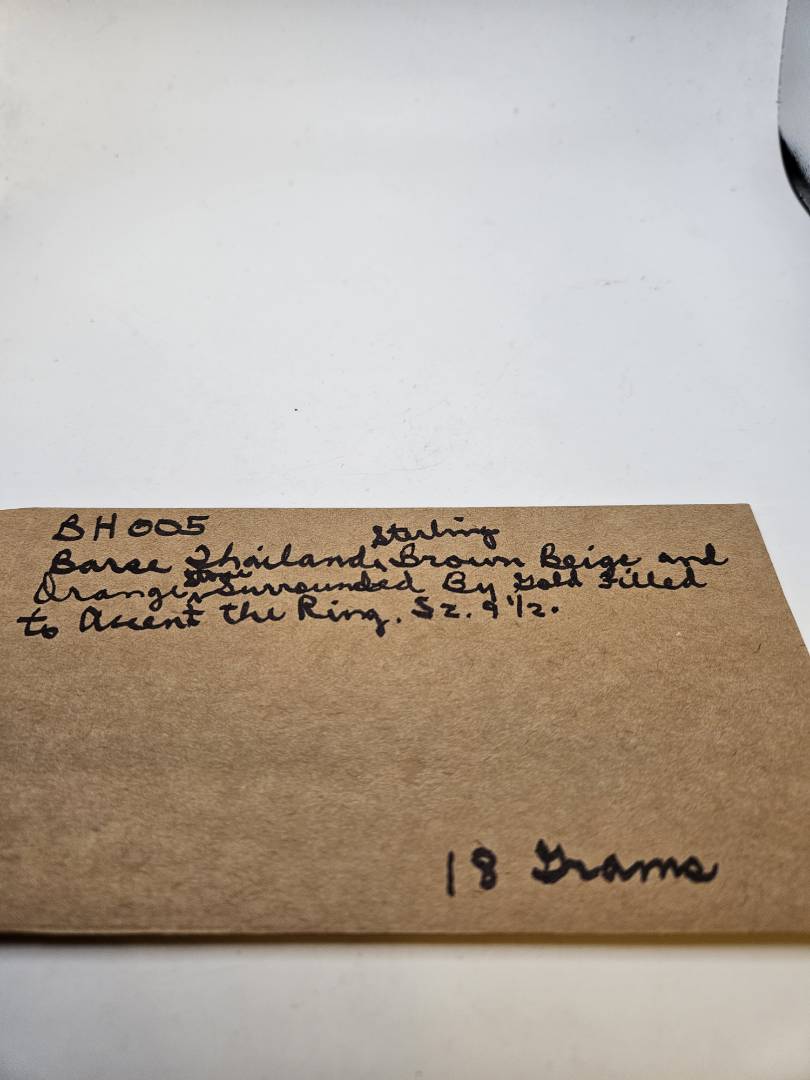 BH005
Sterling
Barse Thailand, Brown Beige and
Stone
Orange, Surrounded By Gold Filled
to Accent the Ring. Sz. 9 1/2.
18 Grams